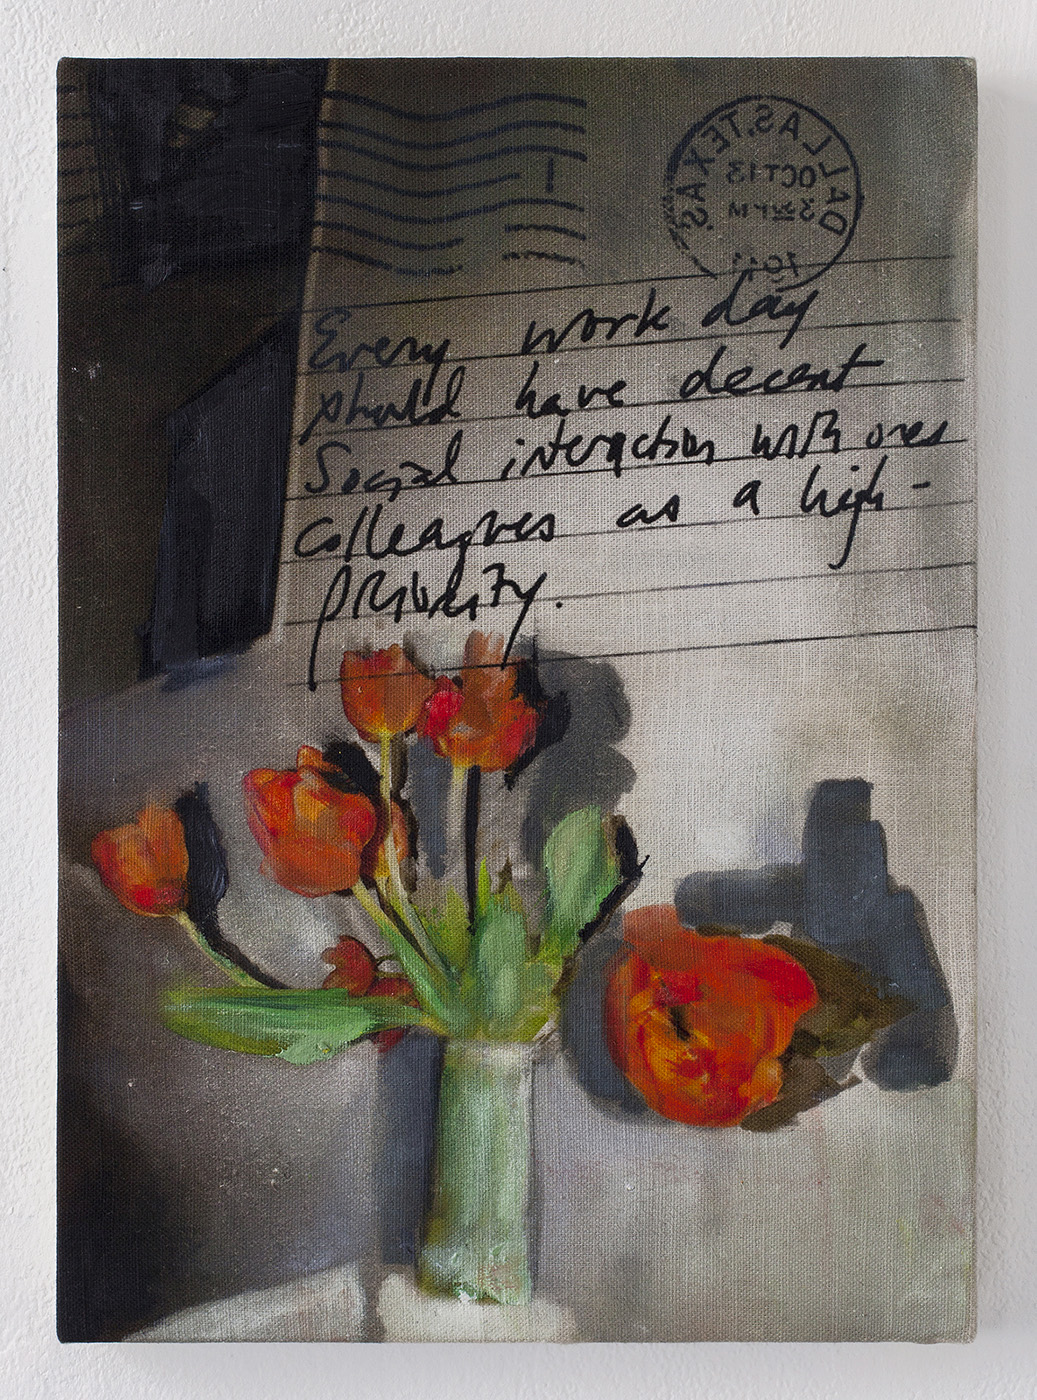 DALLAS, TEXAS.
OCT 13
3 PM
1911
Every work day
should have decent
Social interaction with ones
colleagues as a high-
priority.